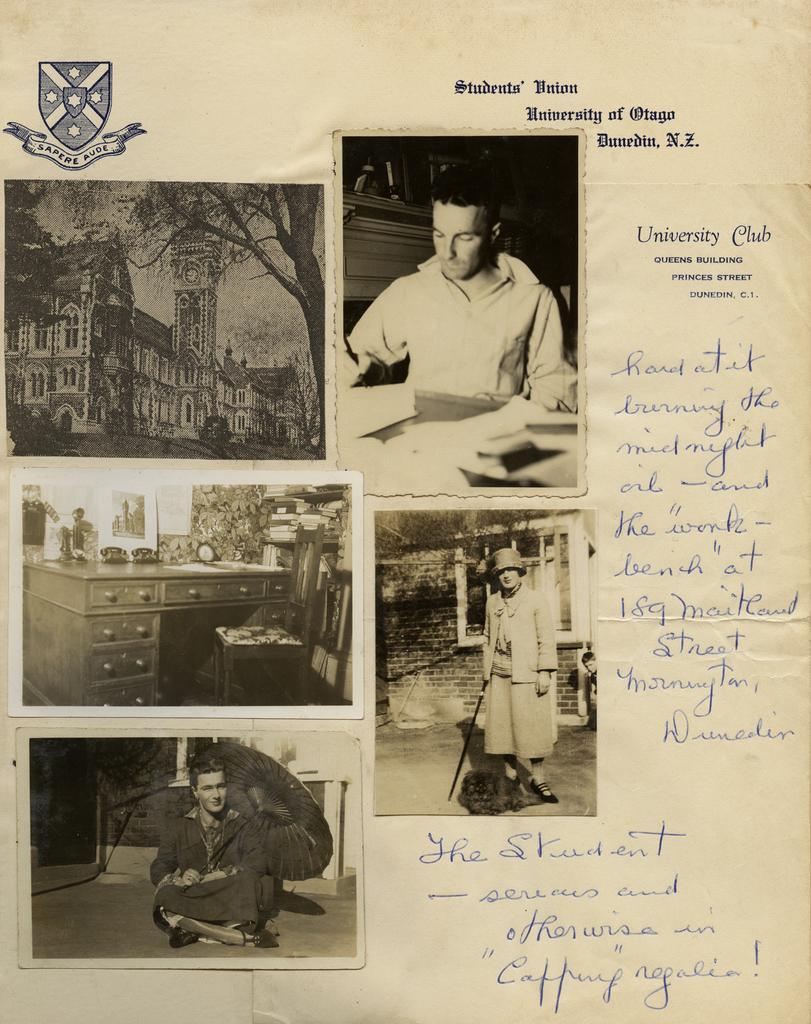 SAPERE AUDE
Students' Union
University of Otago
Dunedin, N.Z.
University Club
QUEENS BUILDING
PRINCES STREET
DUNEDIN, C.1.
hard at it
burning the
midnight
oil – and
the "work-
bench" at
189 Maitland
Street
Mornington,
Dunedin
The Student
– serious and
otherwise in
"Capping" regalia!